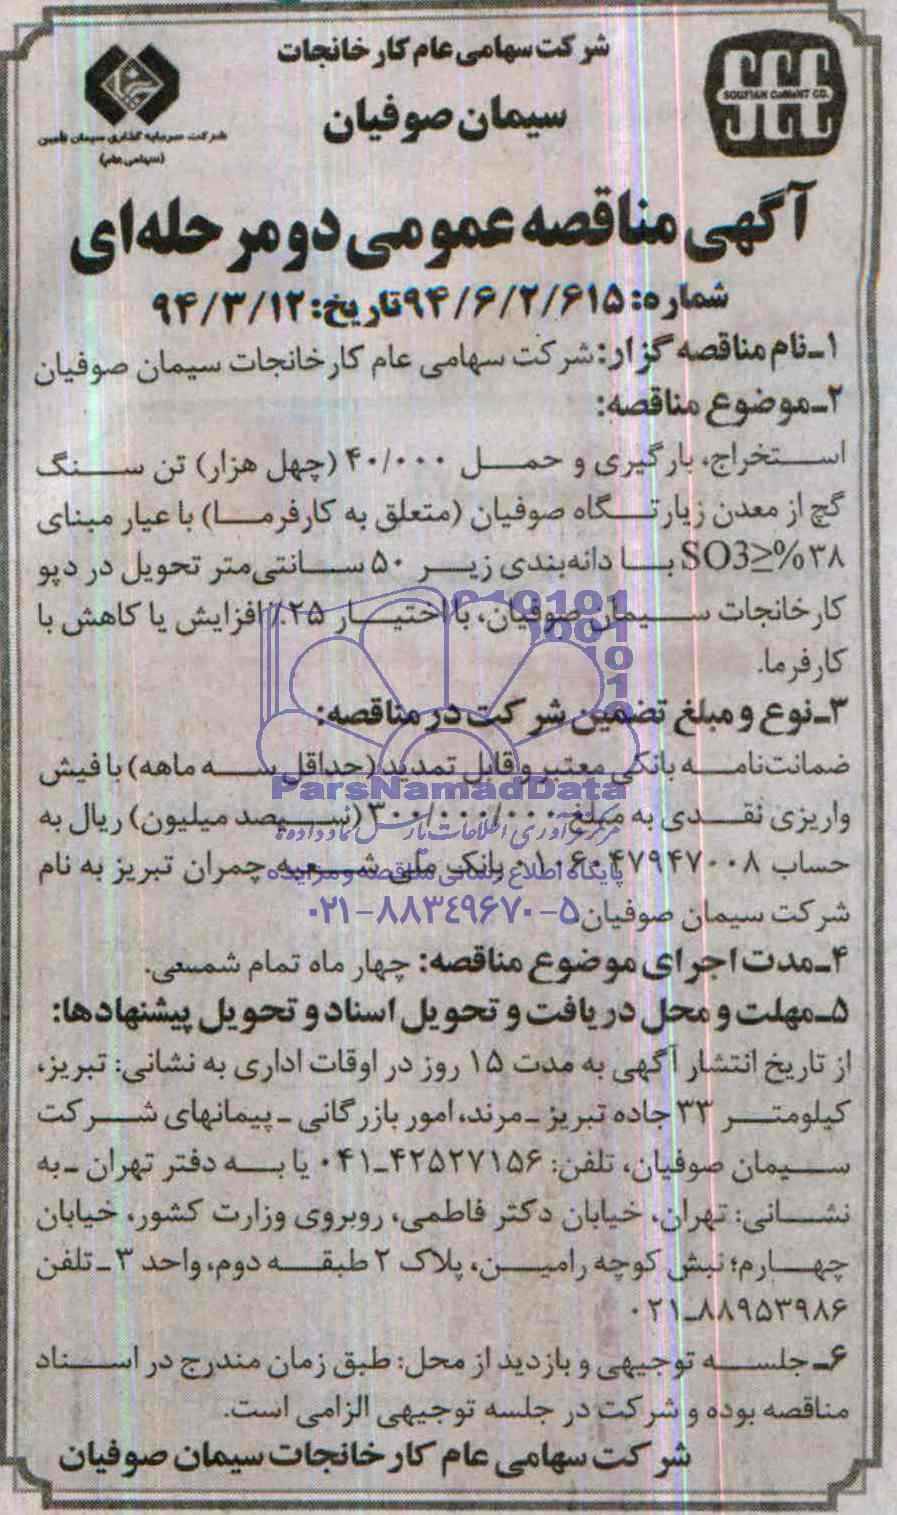 شرکت سهامی عام کارخانجات
SOUFIAN CeMeNT CO.
سیمان صوفیان
شرکت سرمایه گذاری سیمان تأمین
(سهامی عام)
آگهی مناقصه عمومی دو مرحله‌ای
شماره: ۹۴/۶/۲/۶۱۵ تاریخ: ۹۴/۳/۱۲
۱ـ نام مناقصه گزار: شرکت سهامی عام کارخانجات سیمان صوفیان
۲ـ موضوع مناقصه:
استخراج، بارگیری و حمل ۴۰/۰۰۰ (چهل هزار) تن سنگ
گچ از معدن زیارتگاه صوفیان (متعلق به کارفرما) با عیار مبنای
۳۸%≤SO3 با دانه‌بندی زیر ۵۰ سانتی‌متر تحویل در دپو
کارخانجات سیمان صوفیان، با اختیار ۲۵٪ افزایش یا کاهش با
کارفرما.
۳ـ نوع و مبلغ تضمین شرکت در مناقصه:
ضمانت‌نامه بانکی معتبر و قابل تمدید (حداقل سه ماهه) یا فیش
ParsNamadData
واریزی نقدی به مبلغ ۳۰۰/۰۰۰/۰۰۰ (سیصد میلیون) ریال به
مرکز فرآوری اطلاعات پارس نماد داده ها
حساب ۰۱۰۶۰۴۷۹۴۷۰۰۸ بانک ملی شعبه چمران تبریز به نام
پایگاه اطلاع رسانی مناقصه و مزایده
شرکت سیمان صوفیان
۰۲۱-۸۸۳۴۹۶۷۰-۵
۴ـ مدت اجرای موضوع مناقصه: چهار ماه تمام شمسی.
۵ـ مهلت و محل دریافت و تحویل اسناد و تحویل پیشنهادها:
از تاریخ انتشار آگهی به مدت ۱۵ روز در اوقات اداری به نشانی: تبریز،
کیلومتر ۳۳ جاده تبریز ـ مرند، امور بازرگانی ـ پیمانهای شرکت
سیمان صوفیان، تلفن: ۴۲۵۲۷۱۵۶ـ۰۴۱ یا به دفتر تهران ـ به
نشانی: تهران، خیابان دکتر فاطمی، روبروی وزارت کشور، خیابان
چهارم؛ نبش کوچه رامین، پلاک ۲ طبقه دوم، واحد ۳ ـ تلفن
۸۸۹۵۳۹۸۶ـ۰۲۱
۶ـ جلسه توجیهی و بازدید از محل: طبق زمان مندرج در اسناد
مناقصه بوده و شرکت در جلسه توجیهی الزامی است.
شرکت سهامی عام کارخانجات سیمان صوفیان